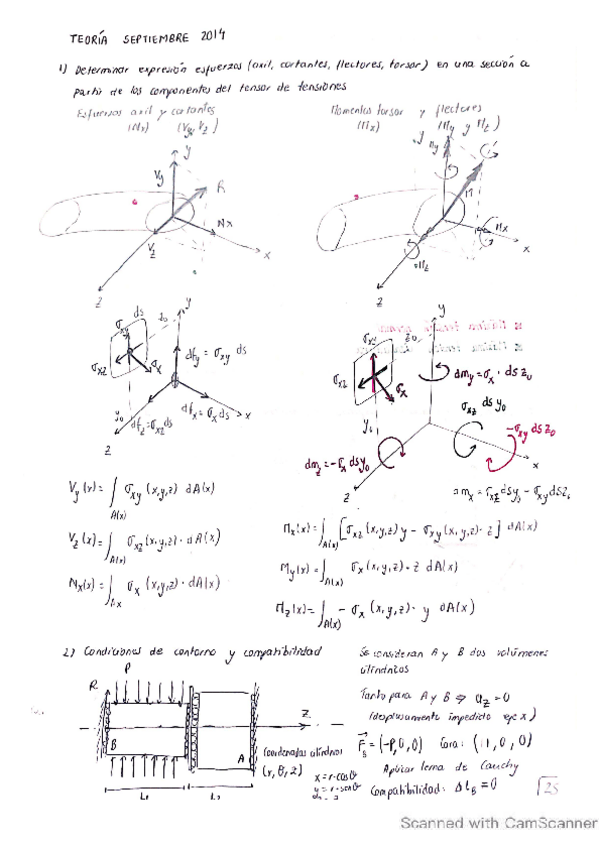 TEORÍA SEPTIEMBRE 2014
1) Determinar expresión esfuerzos (axil, cortantes, flectores, torsor) en una sección a
partir de los componentes del tensor de tensiones
Esfuerzos axil y cortantes
(Nx) (Vy, Vz)
Momentos torsor y flectores
(Mx) (My y Mz)
y
Vy
R
Nx
Vz
x
z
y
My
M
Mx
Mz
x
z
σxy
ds
z0
y
dfy = σxy ds
σxz
σx
y0
dfz = σxz ds
dfx = σx ds
x
z
σxy
z0
y
dmy = σx · ds z0
σxz
σx
σxz ds y0
y0
-σxy ds z0
dmz = -σx ds y0
x
z
dmx = σxz ds y0 - σxy ds z0
Vy(x) = ∫A(x) σxy (x,y,z) dA(x)
Vz(x) = ∫A(x) σxz (x,y,z) · dA(x)
Nx(x) = ∫ σx (x,y,z) · dA(x)
Mx(x) = ∫A(x) [σxz (x,y,z) y - σxy (x,y,z) · z] dA(x)
My(x) = ∫A(x) σx (x,y,z) · z dA(x)
Mz(x) = ∫A(x) - σx (x,y,z) · y dA(x)
2) Condiciones de contorno y compatibilidad
Se consideran A y B dos volúmenes
cilíndricos
P
R
B
A
z
L1
L2
Coordenadas cilíndricas
(r, θ, z)
x = r·cosθ
y = r·senθ
Tanto para A y B ⇒ uz = 0
(desplazamiento impedido eje x)
Fs = (-P, 0, 0) Cara: (1, 0, 0)
Aplicar lema de Cauchy
Compatibilidad: ΔLB = 0
25
Scanned with CamScanner